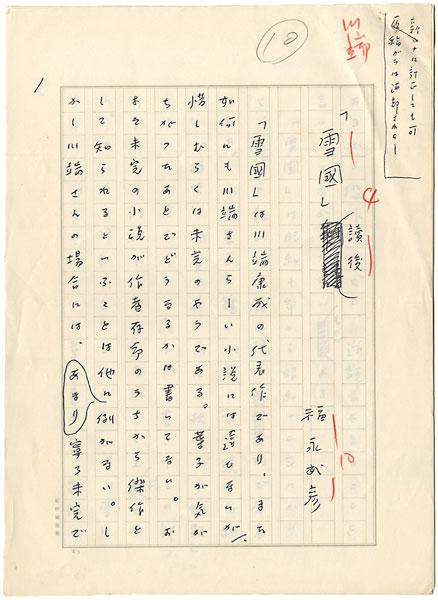 新カナに訂正しても可
川端
10
「雪國」讀後
4
福永武彦
10
「雪國」は川端康成の代表作であり、また
如何にも川端さんらしい小説には違ひないが、
惜しむらくは未完のやうである。葉子が気が
ちがつたあとでどうなるかは書いてない。お
よそ未完の小説が作者存命のうちから傑作と
して知られるといふことは他にあまり例がない。し
かし川端さんの場合には、寧ろ未完で